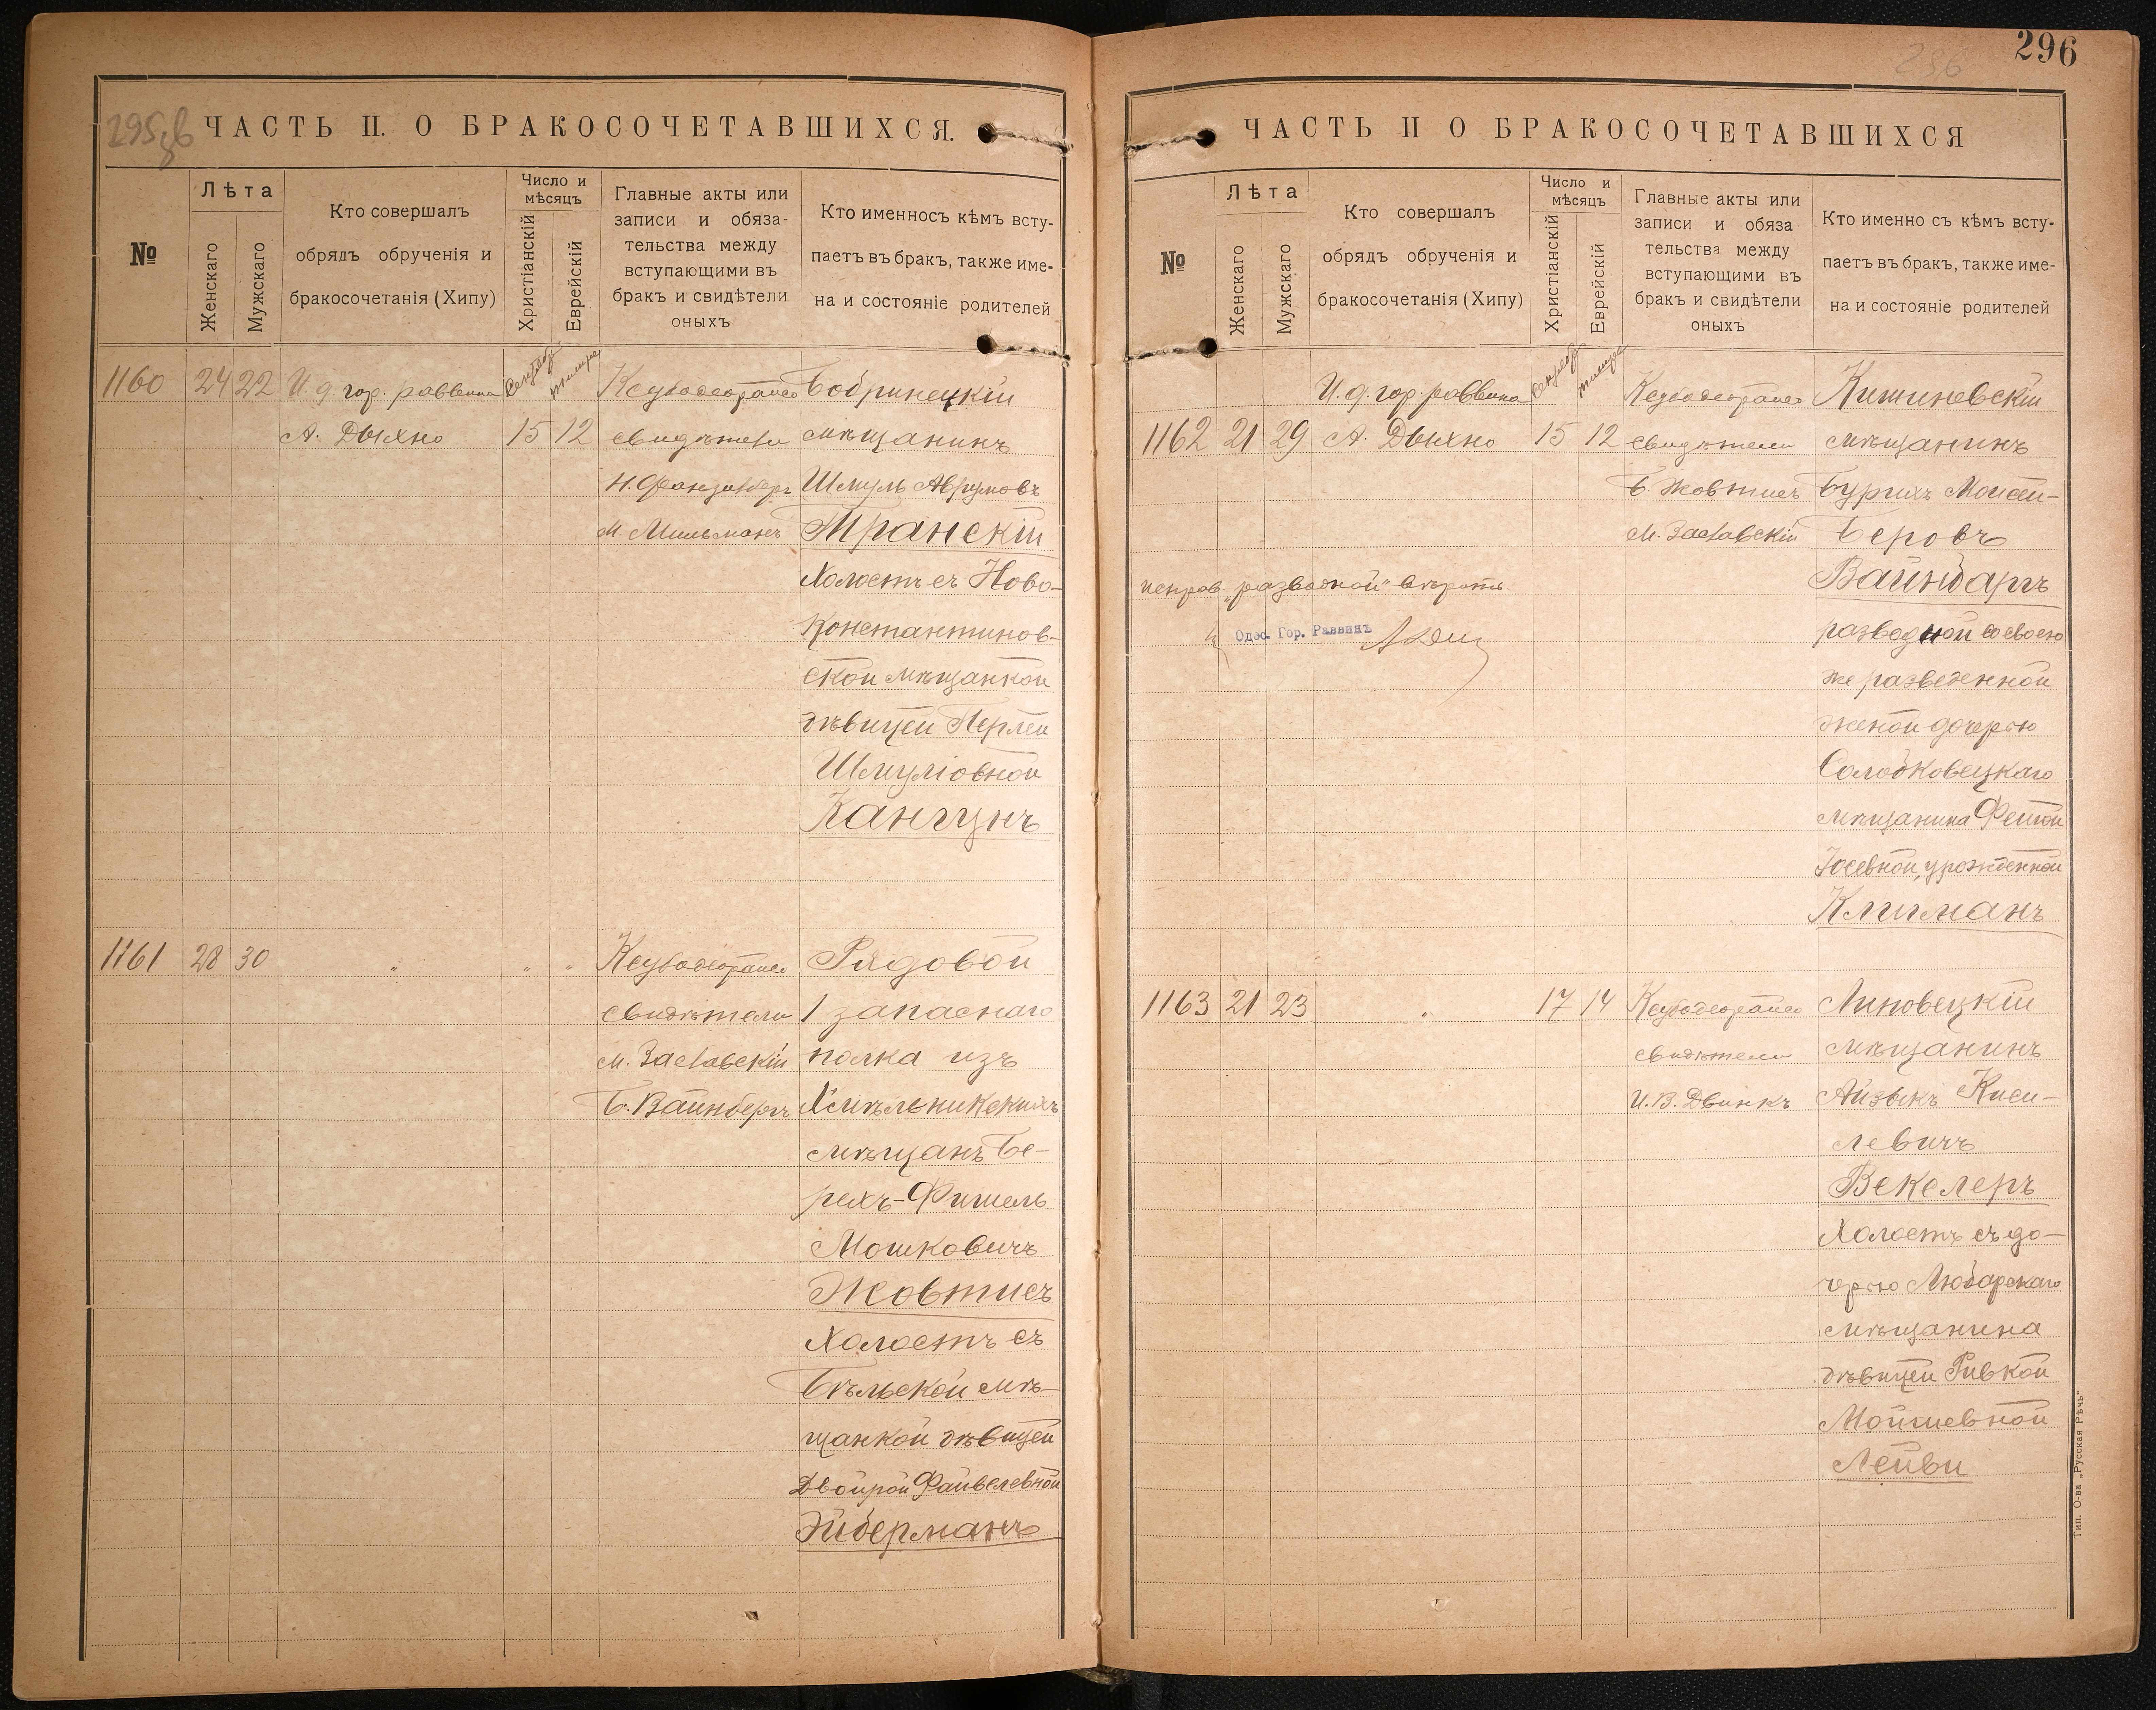 295 об
ЧАСТЬ II. О БРАКОСОЧЕТАВШИХСЯ.
№
Лѣта
Женскаго
Мужскаго
Кто совершалъ
обрядъ обрученія и
бракосочетанія (Хипу)
Число и
мѣсяцъ
Христіанскій
Еврейскій
Главные акты или
записи и обяза-
тельства между
вступающими въ
бракъ и свидѣтели
оныхъ
Кто именносъ кѣмъ всту-
паетъ въ бракъ, также име-
на и состояніе родителей
1160 24 22 И. д. гор. раввина
А. Дыхно 15 12
свидѣтели
М. Мильманъ
Бобринецкій
мѣщанинъ
Шмуль Аврумовъ
Транскій
Холостъ съ Ново-
Константинов-
ской мѣщанкой
дѣвицей Перлей
Шмуліовной
Кангунъ
1161 28 30 " " "
свидѣтели
М. Заславскій
Б. Вайнбергъ
Рядовой
1 запаснаго
полка изъ
Хмѣльникскихъ
мѣщанъ Бе-
рехъ-Фишель
Мошковичъ
Жовтисъ
Холостъ съ
Бѣльской мѣ-
щанкой дѣвицей
Двойрой Файвелевной
Эйберманъ
296
296
ЧАСТЬ II О БРАКОСОЧЕТАВШИХСЯ
№
Лѣта
Женскаго
Мужскаго
Кто совершалъ
обрядъ обрученія и
бракосочетанія (Хипу)
Число и
мѣсяцъ
Христіанскій
Еврейскій
Главные акты или
записи и обяза
тельства между
вступающими въ
бракъ и свидѣтели
оныхъ
Кто именно съ кѣмъ всту-
паетъ въ бракъ, также име-
на и состояніе родителей
И. д. гор. раввина
1162 21 29 А. Дыхно 15 12
свидѣтели
Б. Жовтисъ
М. Заславскій
исправ. „разводной" вѣрить
Одес. Гор. Раввинъ
Кишиневскій
мѣщанинъ
Бурихъ Мойсей-
Беровъ
Вайнбаргъ
разводной со своею
же разведенной
женой дочерью
Солобковецкаго
мѣщанина Фейгой
Іосевной, урожденной
Клигманъ
1163 21 23 " 17 14
свидѣтели
И. В. Двинкъ
Линовецкій
мѣщанинъ
Айзыкъ Киси-
левичъ
Векслеръ
Холостъ съ до-
черью Любарскаго
мѣщанина
дѣвицей Ривкой
Мойшевной
Лейви
Тип. О-ва „Русская Рѣчь"